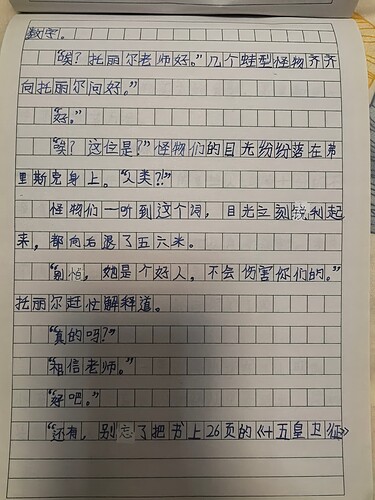 数字。
“唉？托丽尔老师好。”几个蛙型怪物齐齐
向托丽尔问好。”
“好。”
“唉？这位是？”怪物们的目光纷纷落在弟
里斯克身上。“人类？！”
怪物们一听到这个词，目光立刻锐利起
来，都向后退了五六米。
“别怕，她是个好人，不会伤害你们的。”
托丽尔赶忙解释道。
“真的吗？”
“相信老师。”
“好吧。”
“还有，别忘了把书上26页的《十五皇卫征》